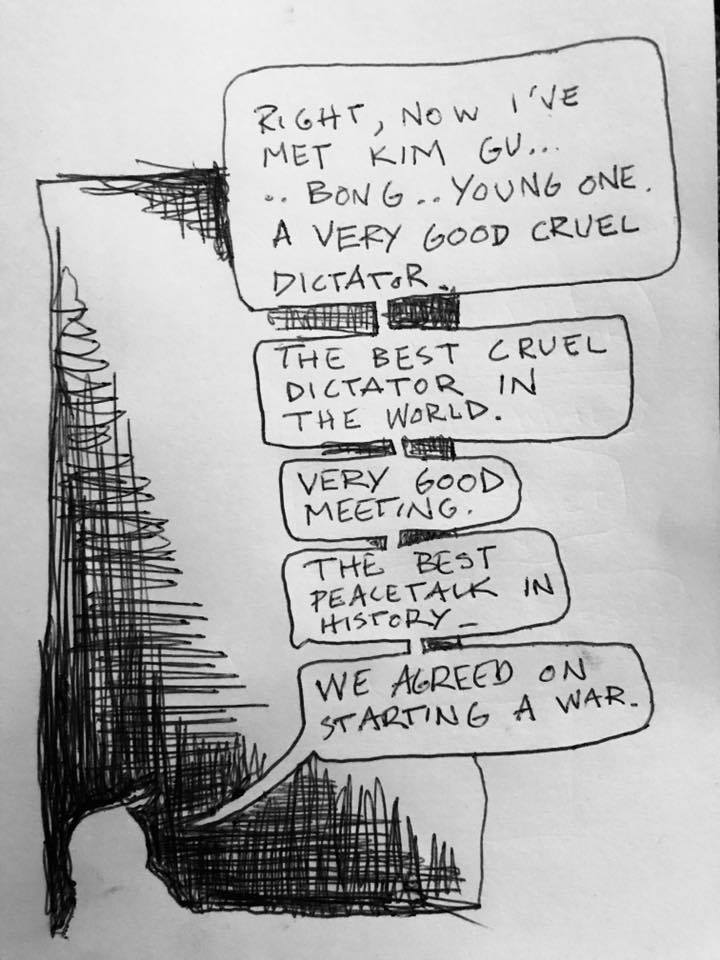 RIGHT, NOW I'VE
MET KIM GU...
.. BONG.. YOUNG ONE.
A VERY GOOD CRUEL
DICTATOR.
THE BEST CRUEL
DICTATOR IN
THE WORLD.
VERY GOOD
MEETING.
THE BEST
PEACETALK IN
HISTORY.
WE AGREED ON
STARTING A WAR.